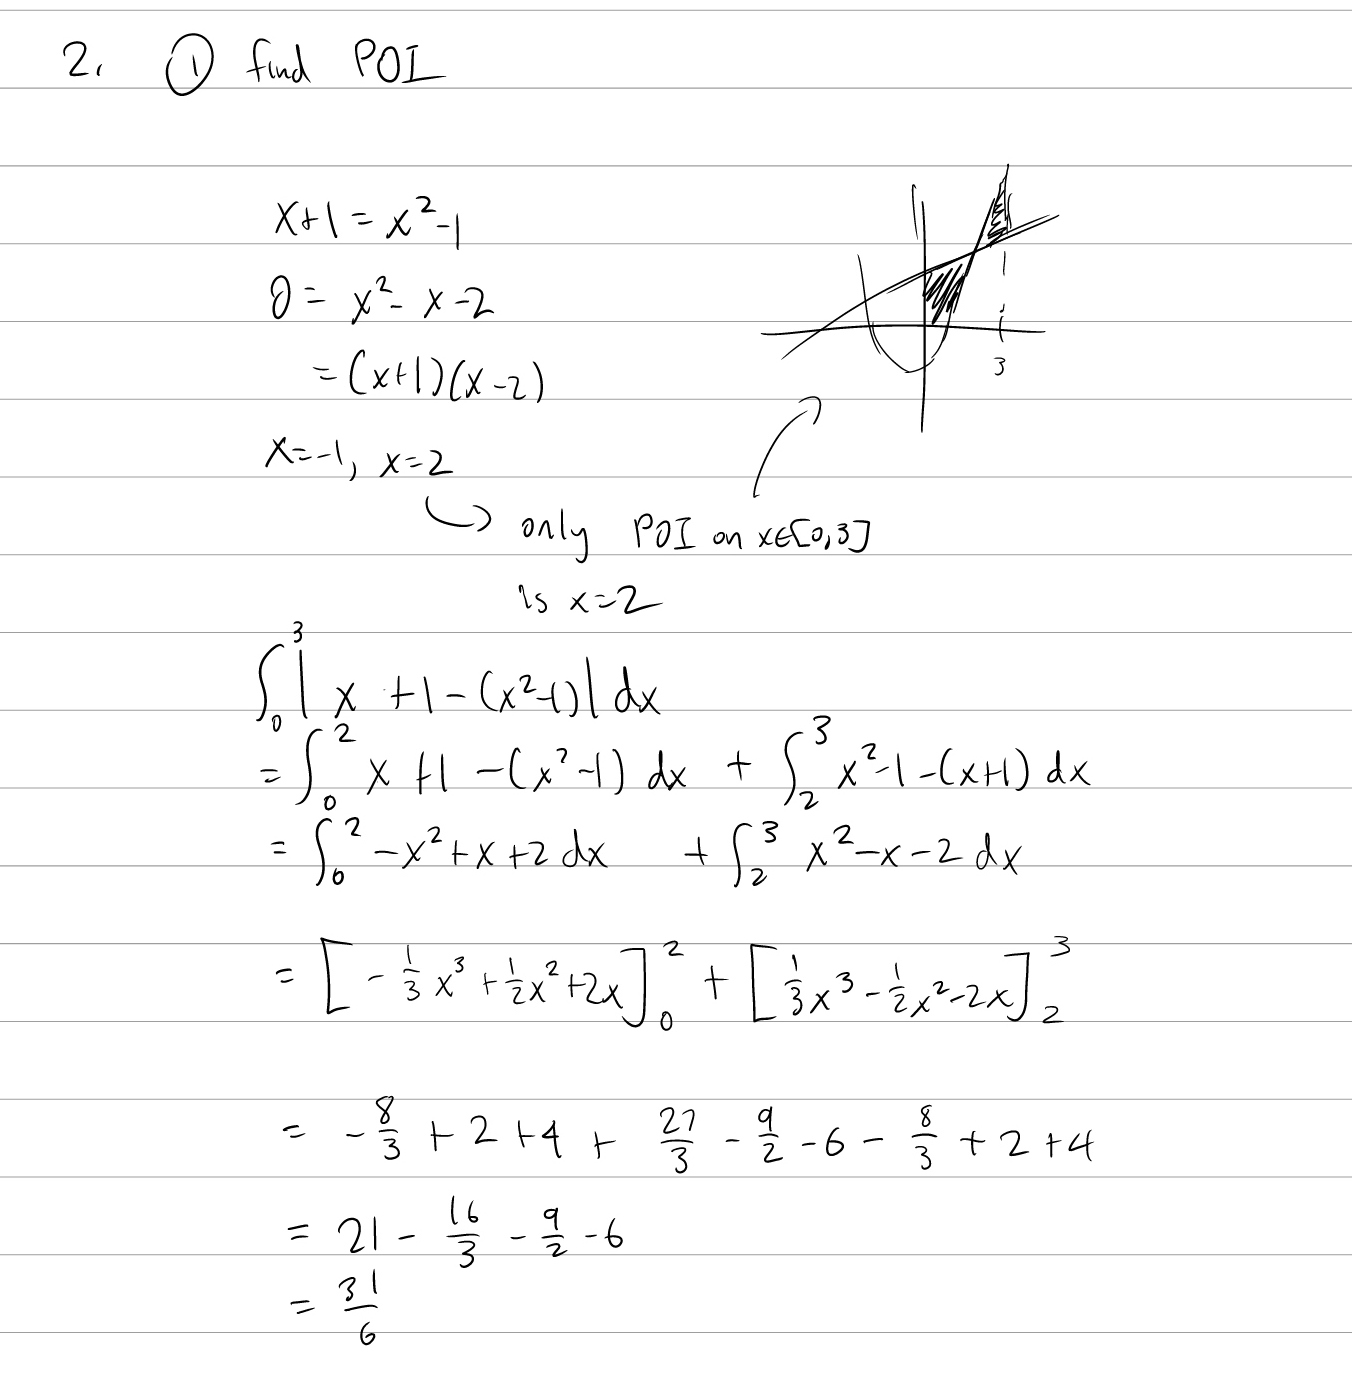 2. ① find POI
x+1 = x²-1
0 = x²-x-2
= (x+1)(x-2)
x=-1, x=2
3
only POI on x∈[0,3]
is x=2
∫₀³ |x +1-(x²-1)| dx
= ∫₀² x +1 -(x²-1) dx + ∫₂³ x²-1-(x+1) dx
= ∫₀² -x²+x+2 dx + ∫₂³ x²-x-2 dx
= [-1/3 x³ + 1/2 x² + 2x]₀² + [1/3 x³ - 1/2 x² - 2x]₂³
= -8/3 + 2 + 4 + 27/3 - 9/2 - 6 - 8/3 + 2 + 4
= 21 - 16/3 - 9/2 - 6
= 31/6